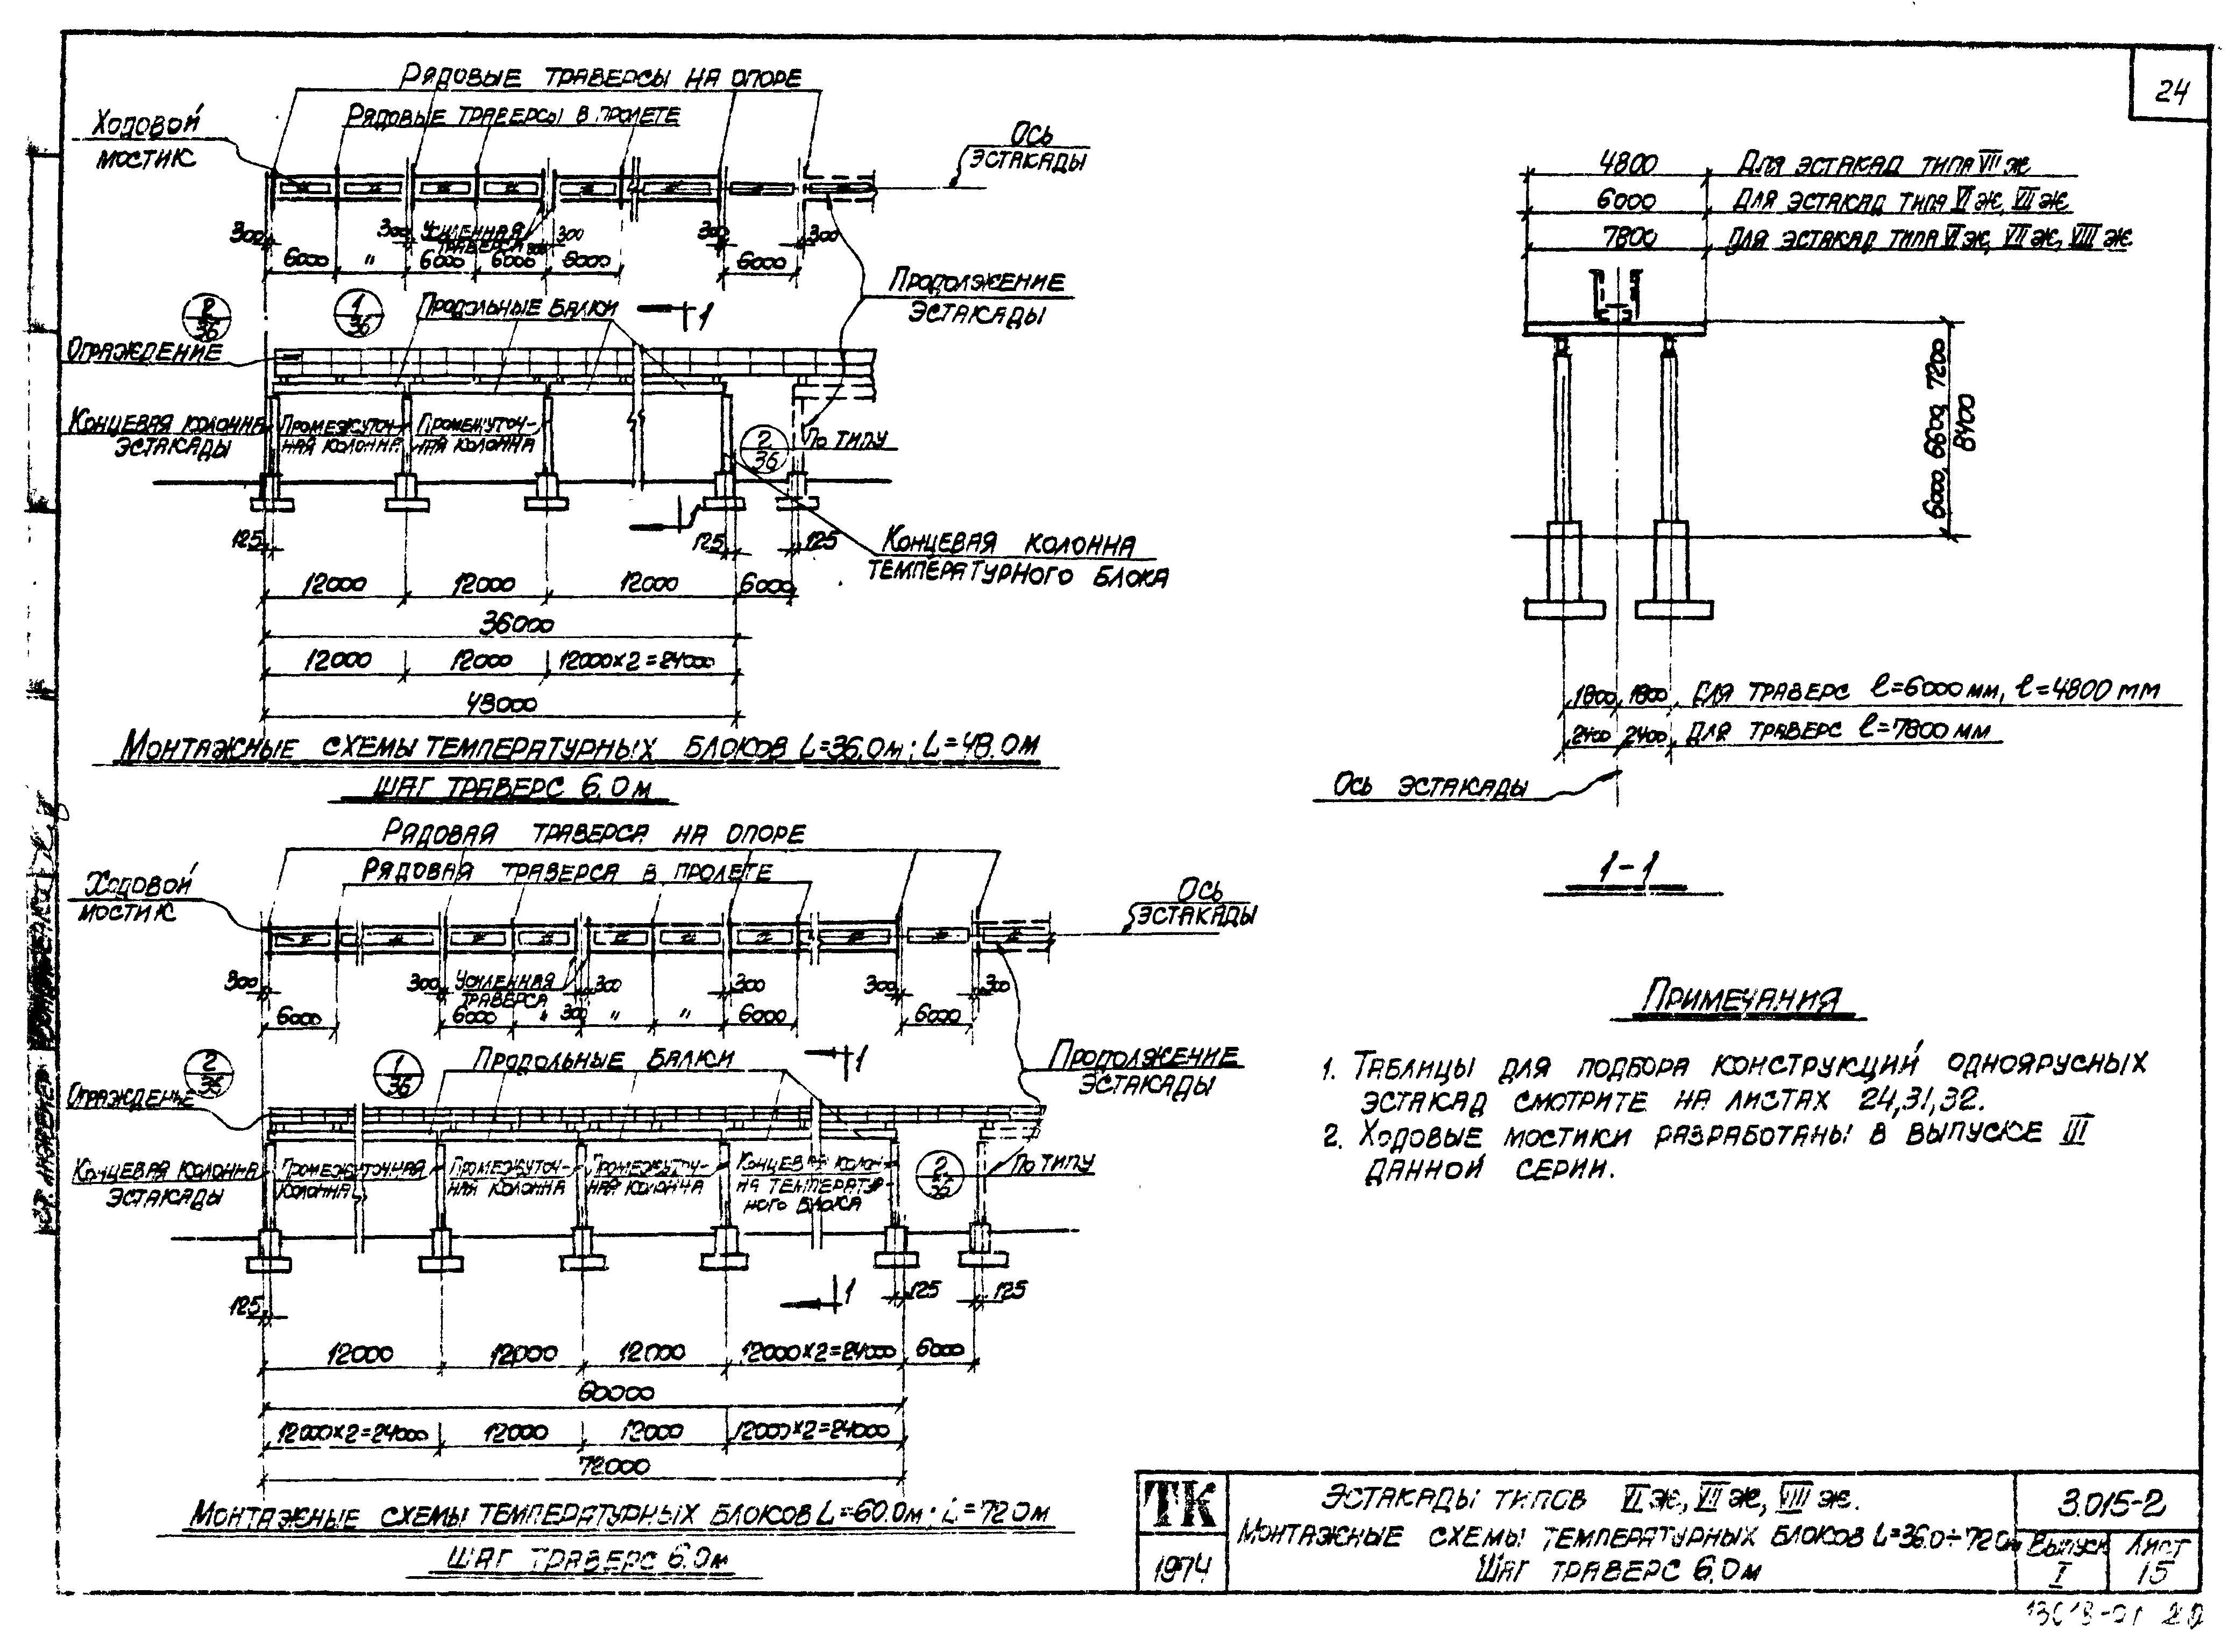 24
Рядовые траверсы на опоре
Рядовые траверсы в пролете
Ходовой
мостик
Ось
эстакады
300
300
Усиленная
траверса
300
300
300
300
6000
"
6000
6000
6000
6000
Продолжение
эстакады
2
36
1
36
Продольные балки
1
Ограждение
Концевая колонна
эстакады
Промежуточ-
ная колонна
Промежуточ-
ная колонна
2
36
По типу
1
125
125
125
Концевая колонна
температурного блока
12000
12000
12000
6000
36000
12000
12000
12000×2=24000
48000
Монтажные схемы температурных блоков L=36.0м; L=48.0м
Шаг траверс 6.0м
4800 Для эстакад типа VIIж
6000 Для эстакад типа VIж, VIIж
7800 Для эстакад типа VIж, VIIж, VIIIж
6000, 6600, 7200
8400
1800 1800 Для траверс ℓ=6000мм, ℓ=4800мм
2400 2400 Для траверс ℓ=7800мм
Ось эстакады
1-1
Рядовая траверса на опоре
Рядовая траверса в пролете
Ходовой
мостик
Ось
эстакады
300
300
Усиленная
траверса
300
300
300
300
300
6000
6000
"
"
"
6000
6000
Продолжение
эстакады
2
36
1
36
Продольные балки
1
Ограждение
Концевая колонна
эстакады
Промежуточная
колонна
Промежуточ-
ная колонна
Промежуточ-
ная колонна
Концевая колон-
на температур-
ного блока
2
36
По типу
1
125
125
125
12000
12000
12000
12000×2=24000
6000
60000
12000×2=24000
12000
12000
12000×2=24000
72000
Монтажные схемы температурных блоков L=60.0м; L=72.0м
Шаг траверс 6.0м
Примечания
1. Таблицы для подбора конструкций одноярусных
эстакад смотрите на листах 24,31,32.
2. Ходовые мостики разработаны в выпуске III
данной серии.
ТК
1974
Эстакады типов VIж, VIIж, VIIIж.
Монтажные схемы температурных блоков L=36.0÷72.0м
Шаг траверс 6.0м
3.015-2
Выпуск
I
Лист
15